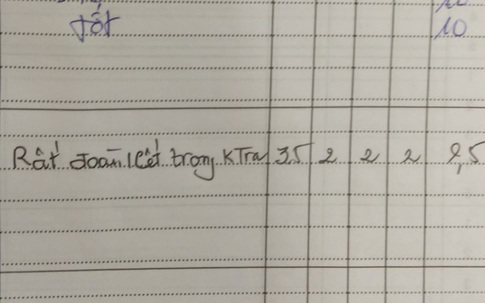 tốt 10
Rất đoàn kết trong KTra 3,5 2 2 2 9,5